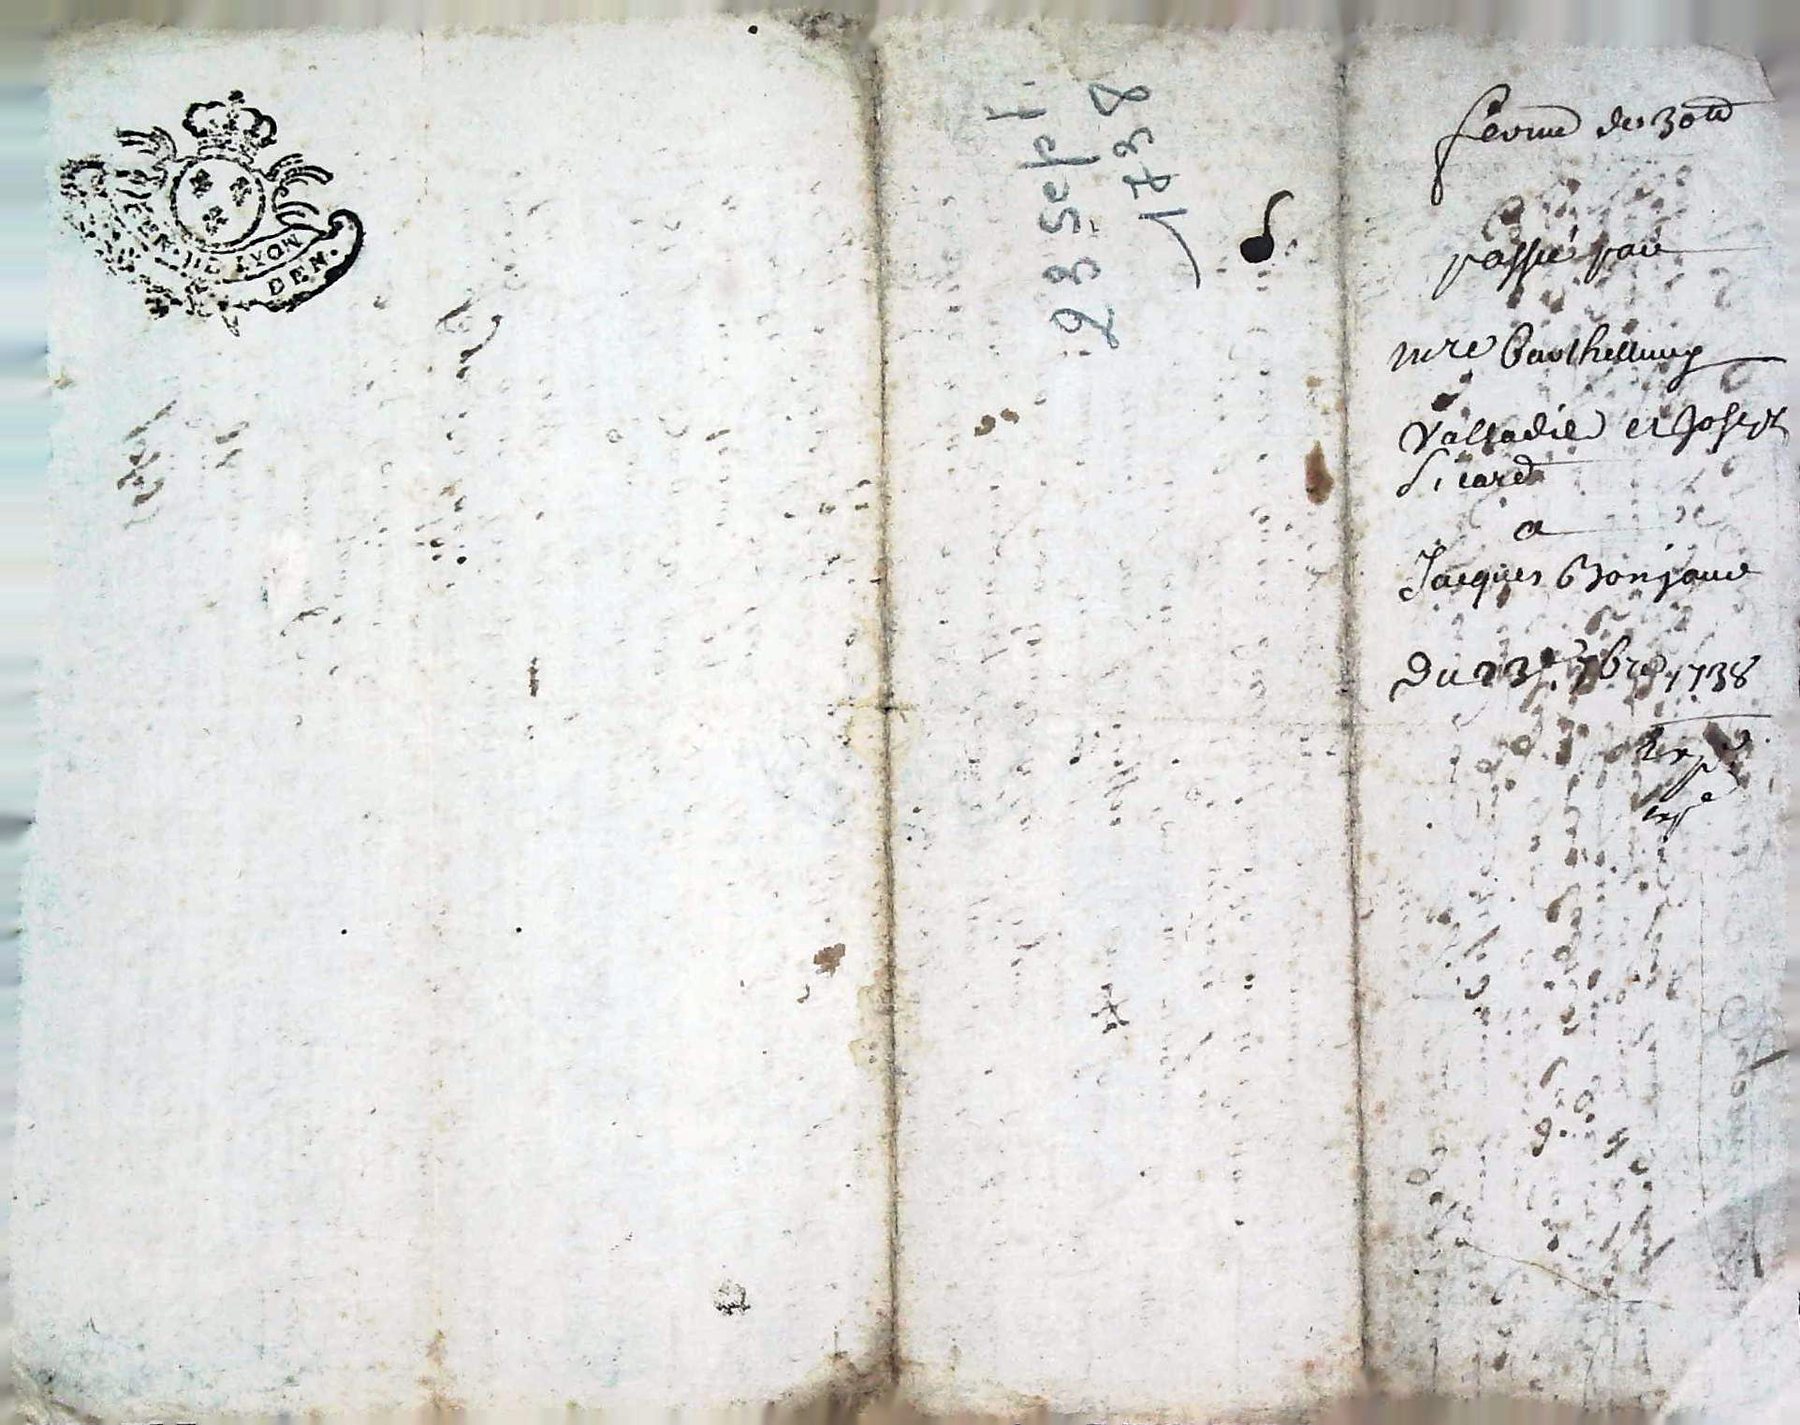 GEN. DE LYON
DEN.
23 sept.
1738
ferme de 30ᵗᵗ
passée par
mre Barthellemy
Valladie et Joseph
Sicard
a
Jacques Bonjour
Du 23e 7bre 1738